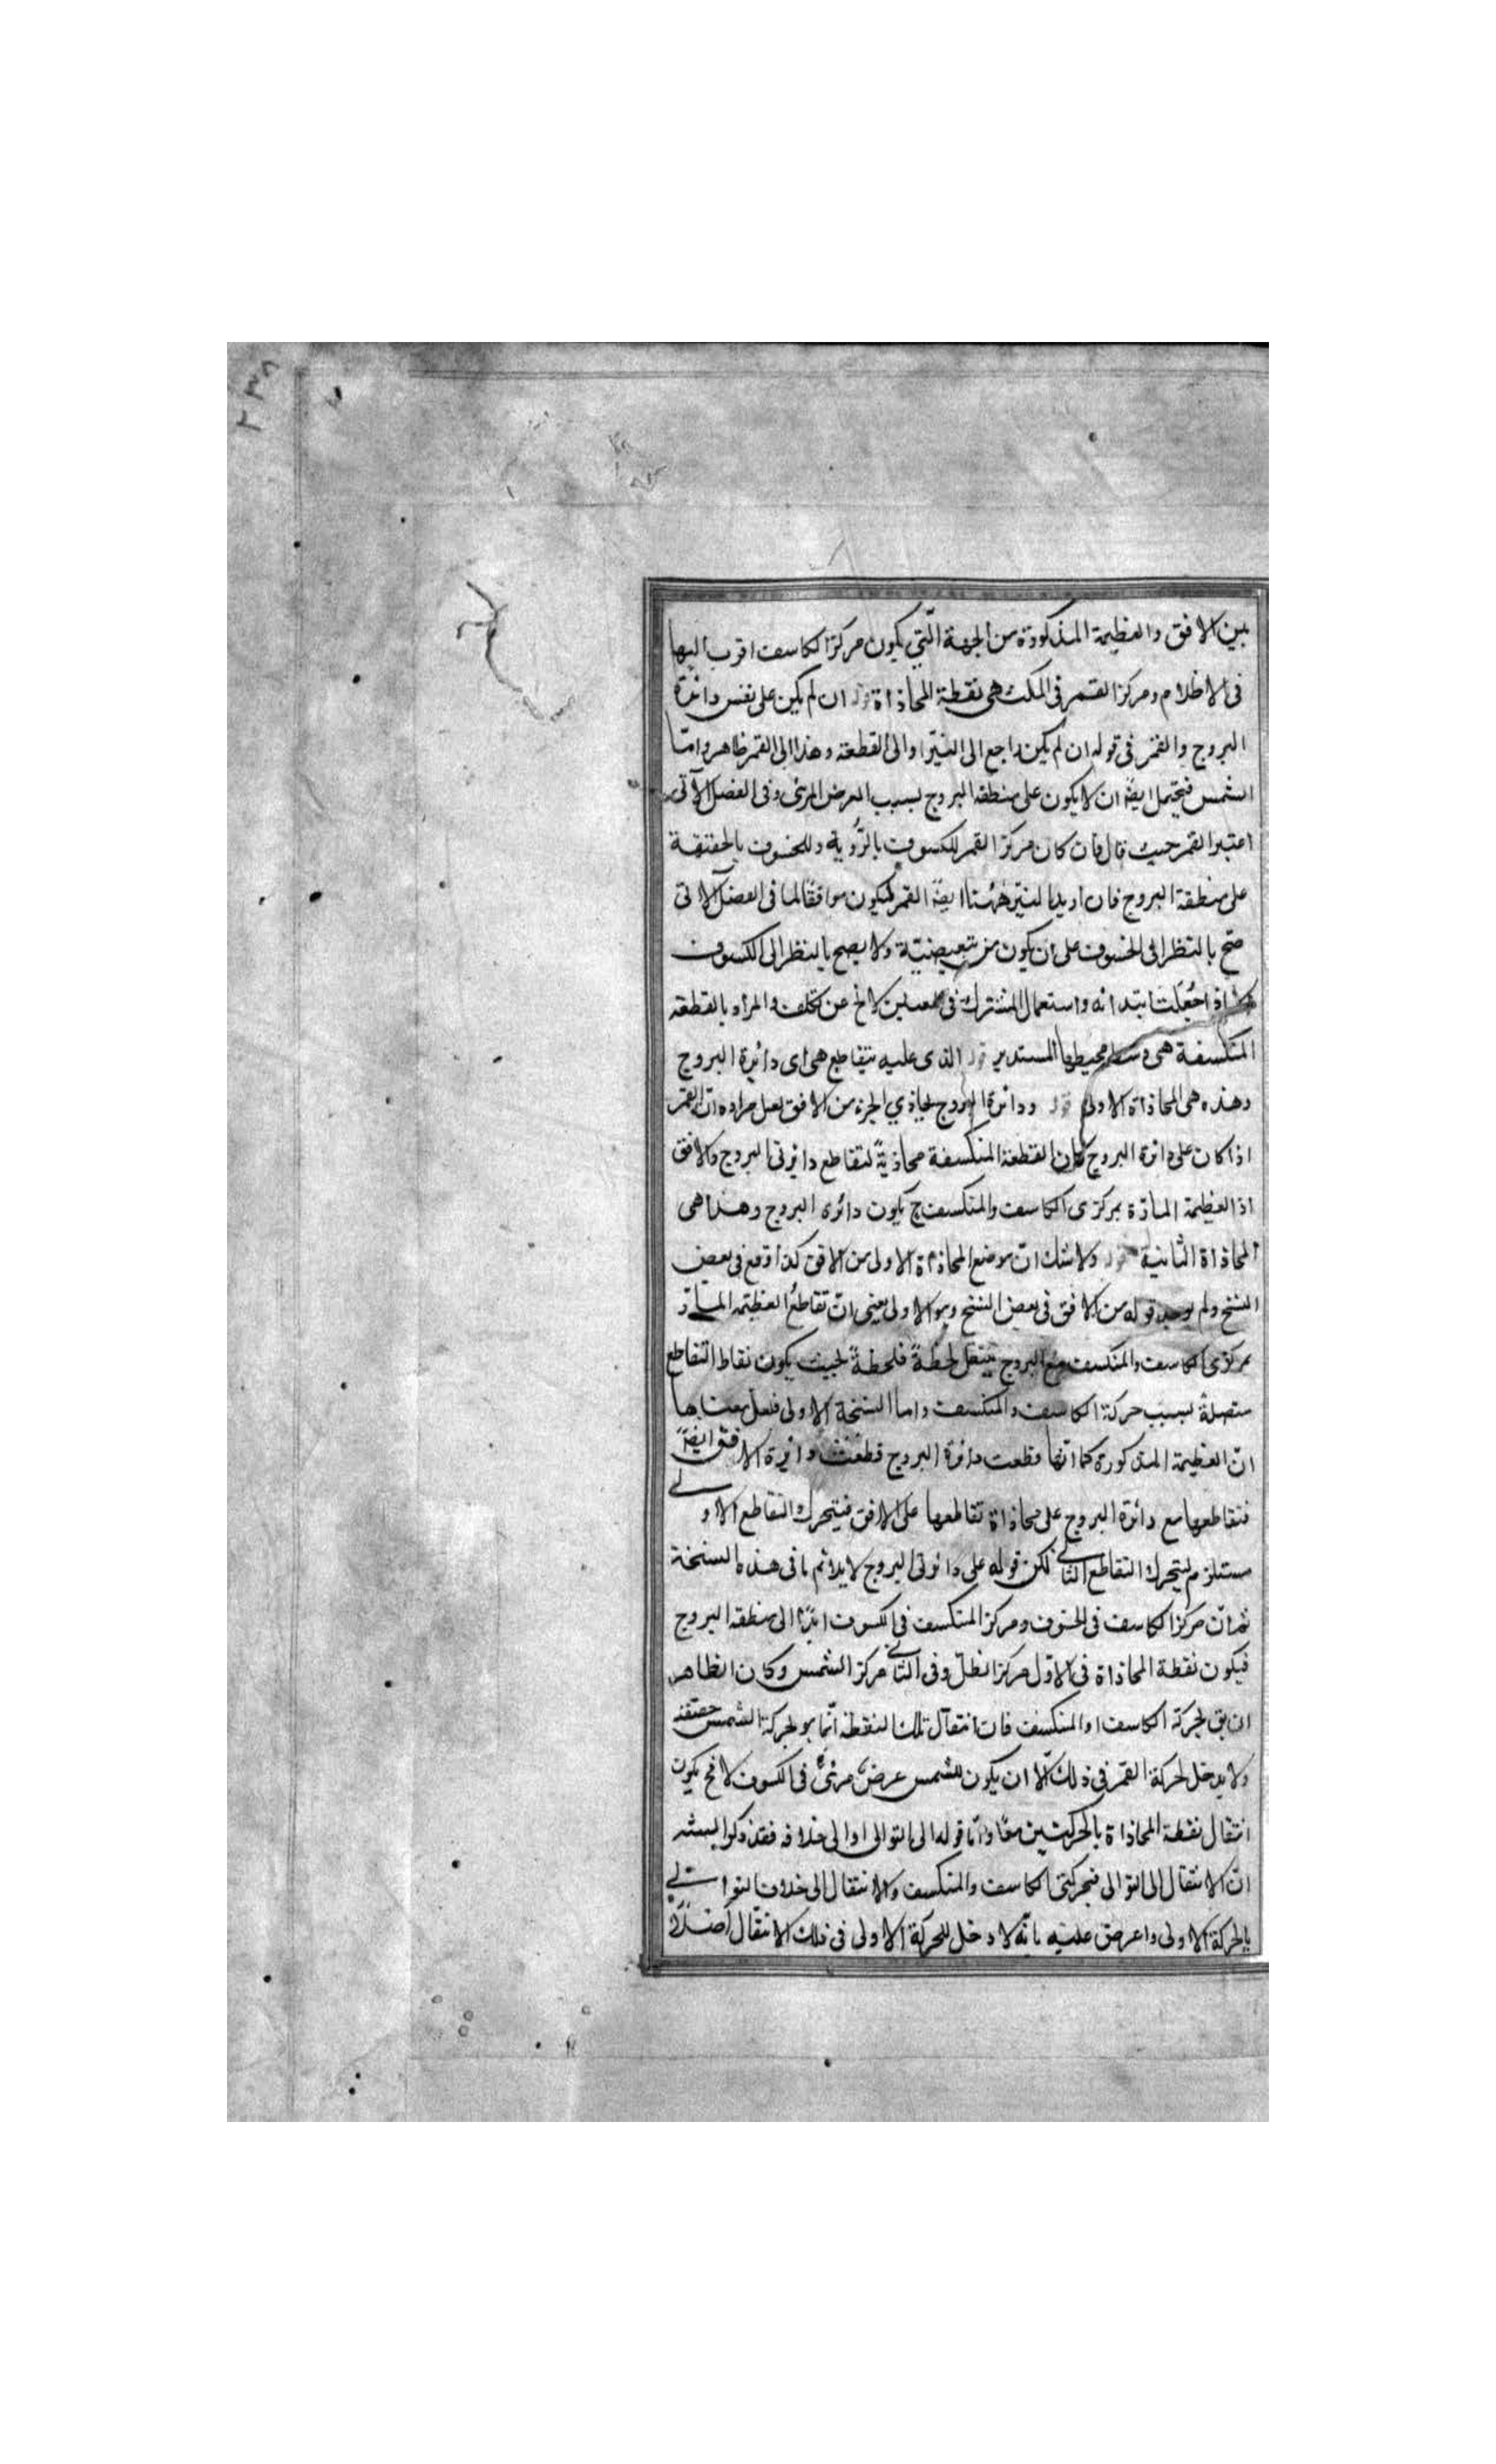 ٢٣٨
بين الافق والعظيمة المذكورة من الجهة الّتي يكون مركز الكاسف اقرب اليها
فى الاظلام ومركز القمر فى المكث هى نقطة المحاذاة قوله ان لم يكن على نفس دائرة
البروج والقمر فى قوله ان لم يكن راجع الى النيّر او الى القطعة وهذا الى القمر ظاهر وامّا
الشمس فيحتمل ايضًا ان لا يكون على منطقة البروج بسبب العرض المرئى وفى الفصل الآتى
اعتبر القمر حيث قال فان كان مركز القمر للكسوف بالرُّوية وللخسوف بالحقيقة
على منطقة البروج فان اريد بالنيّر ههُنا ايضًا القمر ليكون موافقًا لما فى الفصل الاتى
صحّ بالنظر الى الخسوف على ان يكون من تبعيضيّة ولا يصح بالنظر الى الكسوف
اذا جُعلت ابتدائه واستعمال المشترك فى المعنيين لا يخ عن تكلف والمراد بالقطعه
المنكسفة هى وسط محيطها المستدير قوله الذى عليه يتقاطع هى اى دائرة البروج
وهذه هى المحاذاة الاولى قوله ودائرة البروج يحاذي الجزء من الافق لعل مراده انّ القمر
اذا كان على دائرة البروج كان القطعة المنكسفة محاذيةً لتقاطع دائرتى البروج والافق
اذ العظيمة المارّة بمركزى الكاسف والمنكسف ح يكون دائره البروج وهذا هى
المحاذاة الثانية قوله ولا شك انّ موضع المحاذاة الاولى من الافق كذا وقع فى بعض
النسخ ولم يوجد قوله من الافق فى بعض النسخ وهو الاولى يعنى انّ تقاطعُ العظيمه المارّة
بمركزى الكاسف والمنكسف مع البروج ينتقل لحظةً فلحظةً بحيث يكون نقاط التقاطع
متصلةً بسبب حركة الكاسف والمنكسف واما النسخة الاولى فلعل معناها
انّ العظيمة المذكورة كما انّها قطعت دائرة البروج قطعَت دائرة الافق ايضًا
فتقاطعها مع دائرة البروج على محاذاة تقاطعها على الافق فيتحرك التقاطع الاولى
مستلزم لتحرك التقاطع الثانى لكن قوله على دائرتى البروج لا يلائم ما فى هذه النسخة
ثم انّ مركز الكاسف فى الخسوف ومركز المنكسف فى الكسوف ابدًا الى منطقة البروج
فيكون نقطة المحاذاة فى الاوّل مركز الظلّ وفى الثانى مركز الشمس وكان الظاهر
ان يق بحركة الكاسف او المنكسف فان انتقال تلك النقطة انّما هو بحركة الشمس حقيقة
ولا يدخل لحركة القمر فى ذلك الّا ان يكون للشمس عرضٌ مرئىٌ فى الكسوف لانح يكون
انتقال نقطة المحاذاة بالحركتين معًا وامّا قوله الى التوالى او الى خلافه فقد ذكر السند
انّ الانتقال الى التوالى فبحركتى الكاسف والمنكسف والانتقال الى خلاف التوالى
بالحركة الاولى واعرض عليه بانّه لا دخل للحركة الاولى فى ذلك الانتقال اصلًا